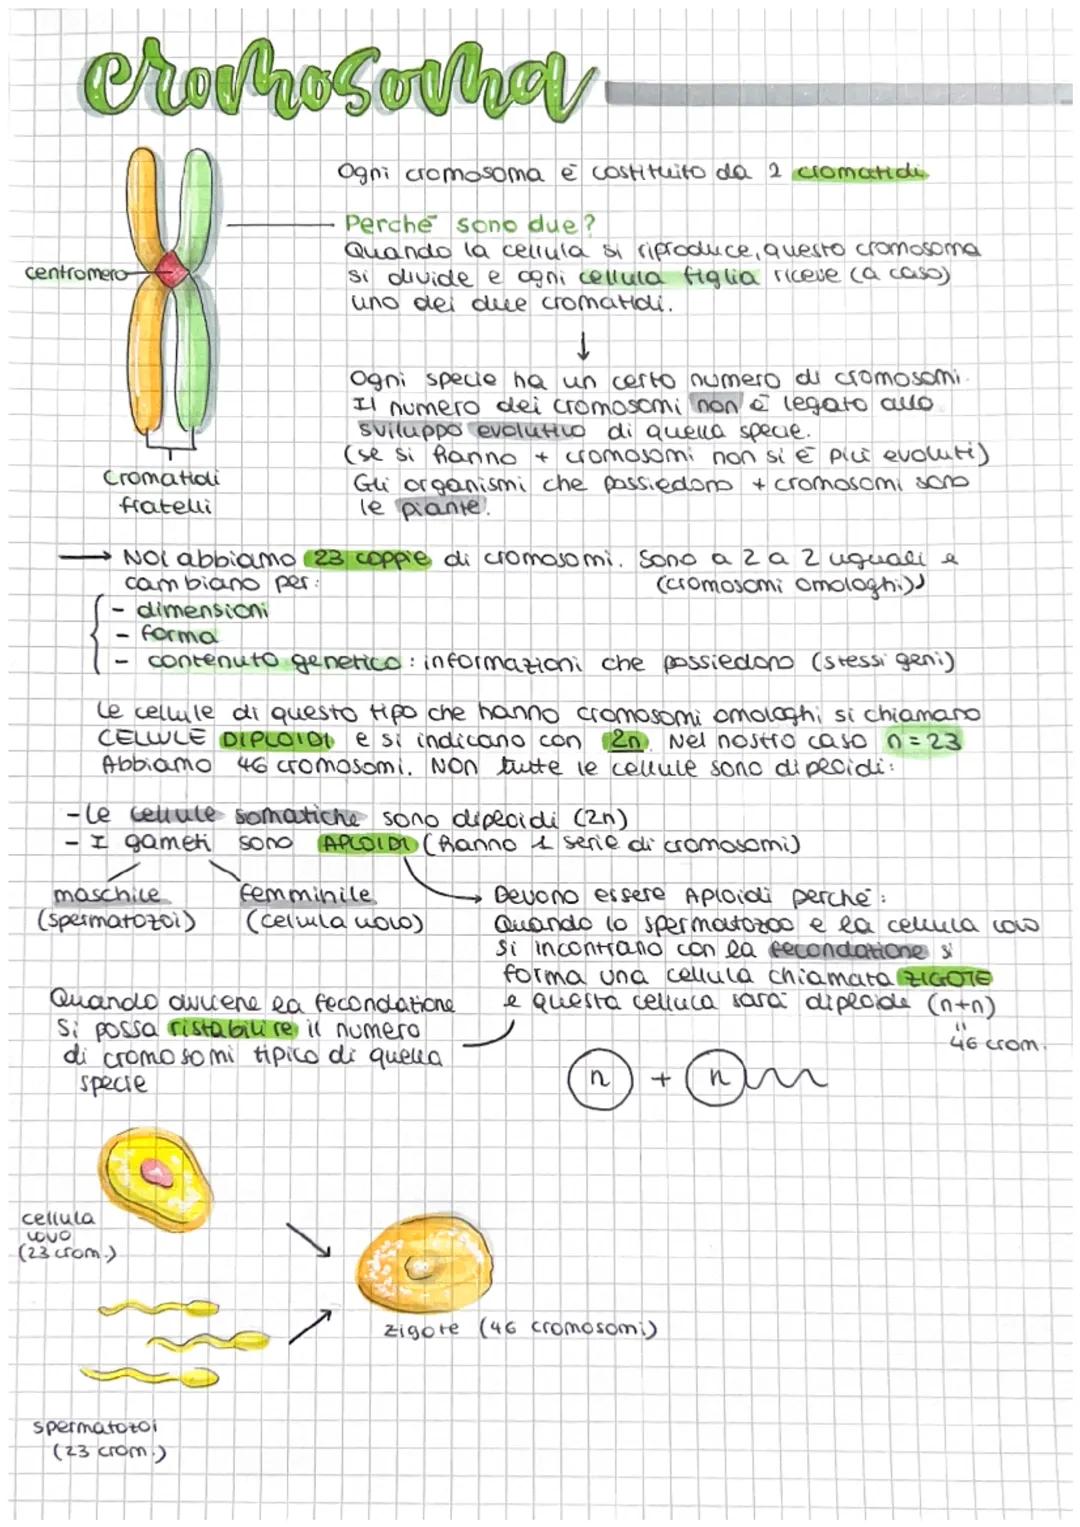 cromosoma
Ogni cromosoma è costituito da 2 cromatidi
Perché sono due?
Quando la cellula si riproduce, questo cromosoma
si divide e ogni cellula figlia riceve (a caso)
uno dei due cromatidi.
centromero
cromatidi
fratelli
↓
Ogni specie ha un certo numero di cromosomi.
Il numero dei cromosomi non è legato allo
sviluppo evolutivo di quella specie.
(se si hanno + cromosomi non si è più evoluti)
Gli organismi che possiedono + cromosomi sono
le piante.
→ Noi abbiamo 23 coppie di cromosomi. Sono a 2 a 2 uguali e
cambiano per: (cromosomi omologhi)
- dimensioni
- forma
- contenuto genetico: informazioni che possiedono (stessi geni)
Le cellule di questo tipo che hanno cromosomi omologhi si chiamano
CELLULE DIPLOIDI e si indicano con 2n. Nel nostro caso n=23
Abbiamo 46 cromosomi. NON tutte le cellule sono diploidi:
- Le cellule somatiche sono diploidi (2n)
- I gameti sono APLOIDI (hanno 1 serie di cromosomi)
maschile
(spermatozoi)
femminile
(cellula uovo)
→ Devono essere Aploidi perché:
Quando lo spermatozoo e la cellula uovo
si incontrano con la fecondazione si
forma una cellula chiamata ZIGOTE
e questa cellula sarà diploide (n+n)
"
46 crom.
Quando avviene la fecondazione
si possa ristabilire il numero
di cromosomi tipico di quella
specie
n + n
cellula
uovo
(23 crom.)
zigote (46 cromosomi)
spermatozoi
(23 crom.)